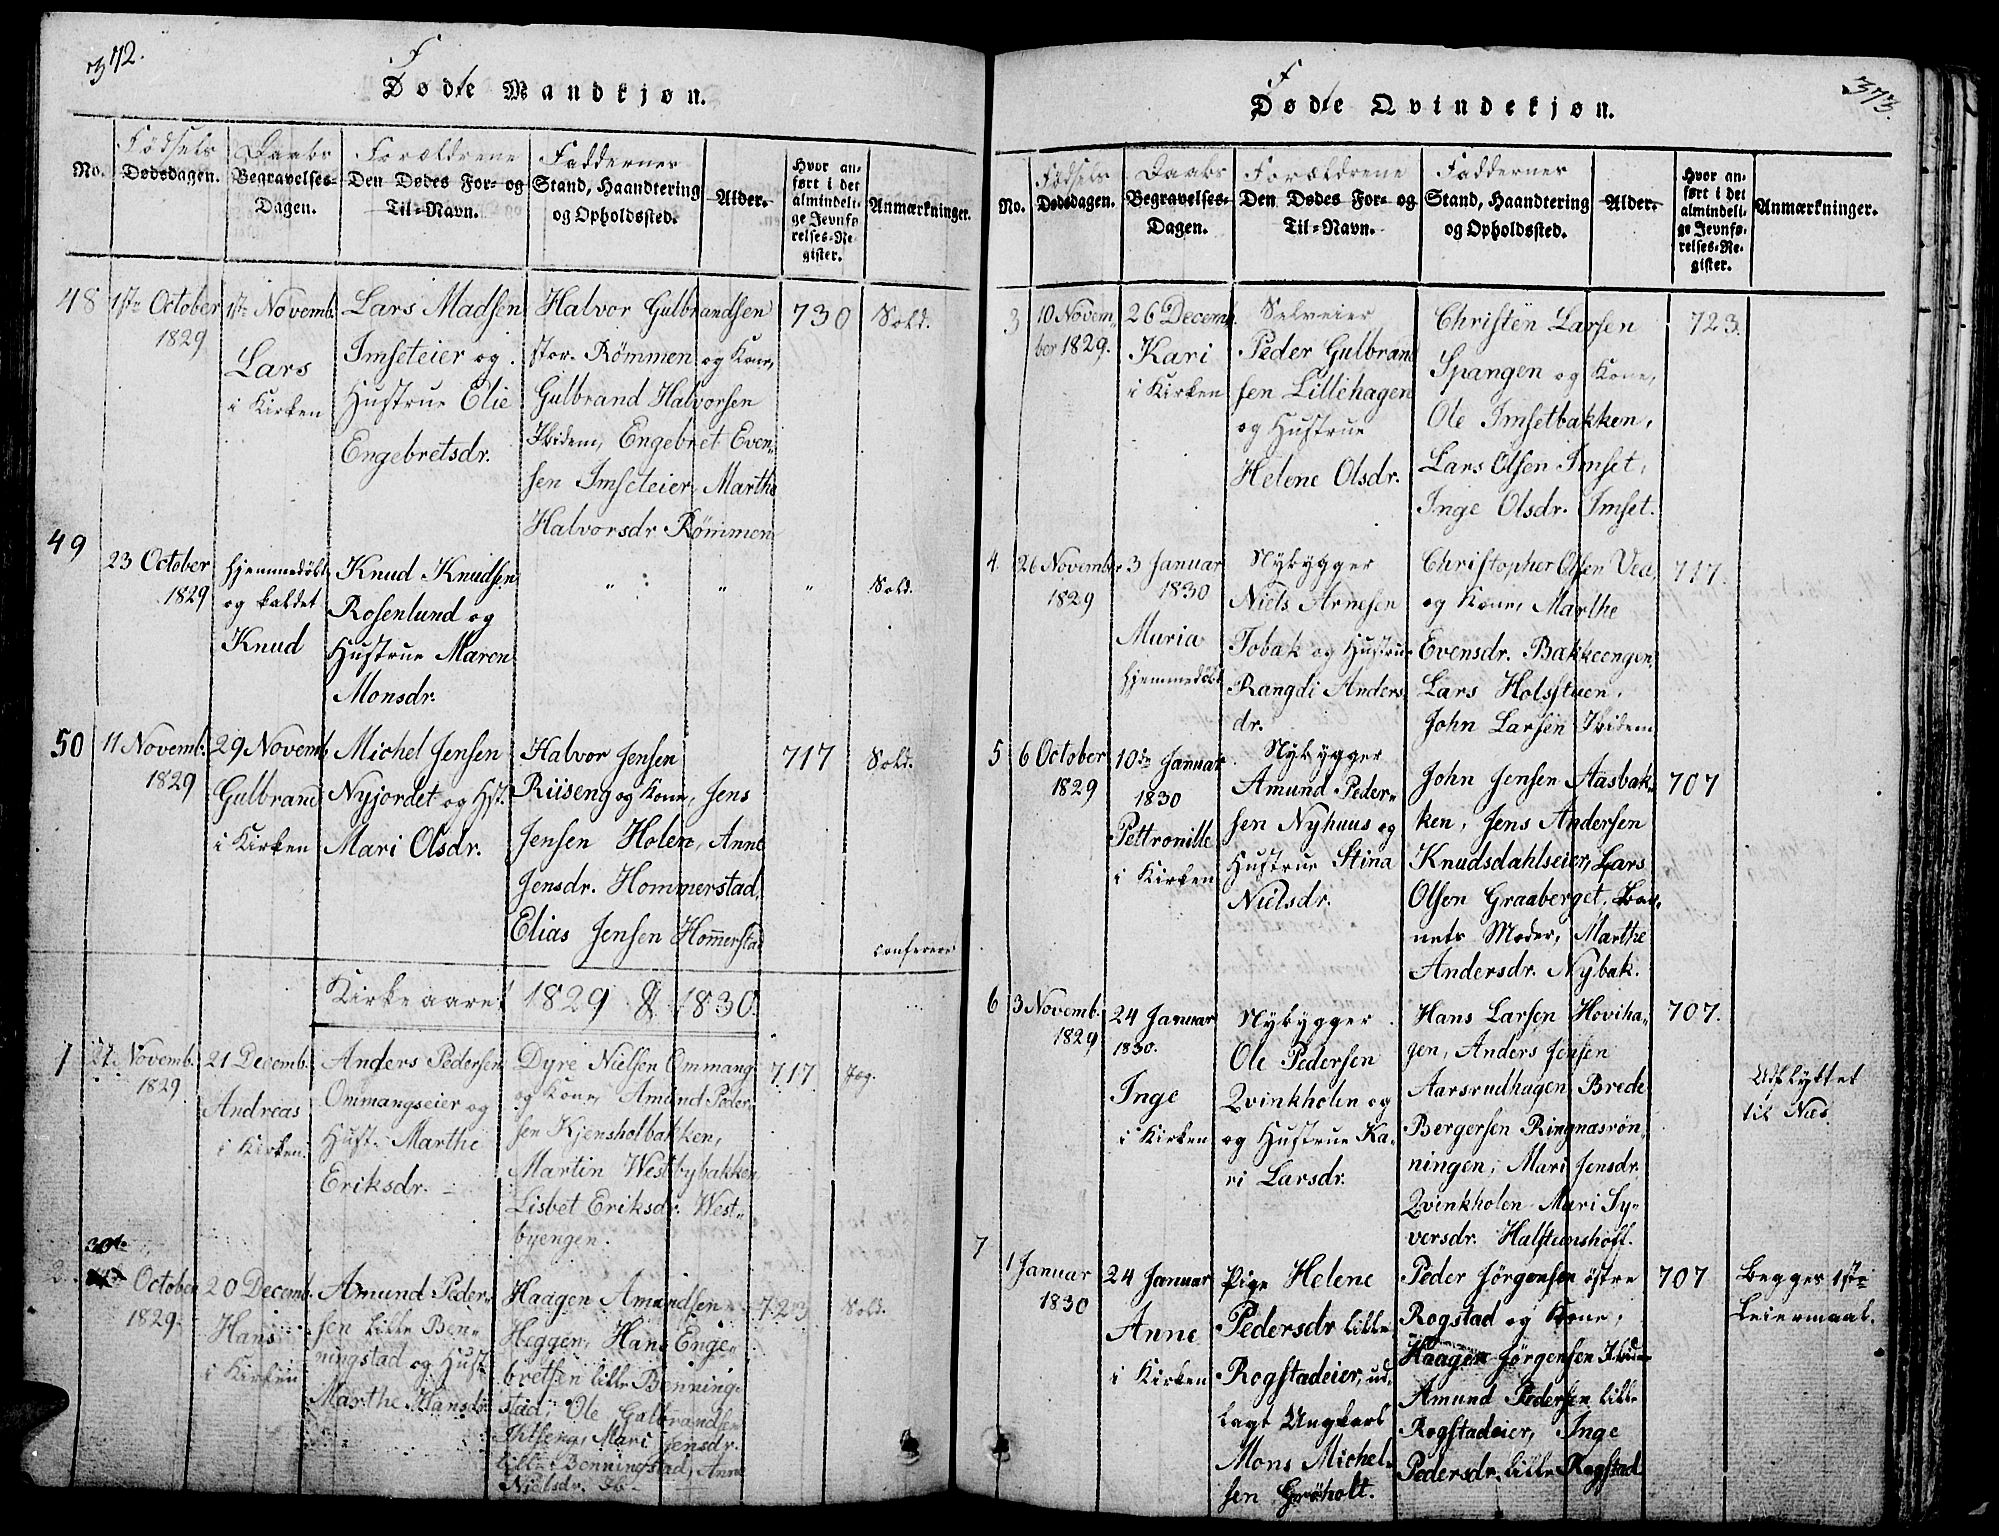 372.
F
Dødte Mandkjøn.
No.
Fødsels
Dødsdagen.
Daabs
Begravelses-
Dagen.
Forældrene
Den Dødes For- og
Til-Navn.
Faddernes
Stand, Haandtering
og Opholdssted.
Alder.
Hvor an-
ført i det
almindeli-
ge Jevnfø-
relses-Re-
gister.
Anmærkninger.
48
1ste October
1829
1ste Novemb.
Lars
i Kirken
Lars Madsen
Imseteier og
Hustrue Elie
Engebretsdr.
Halvor Gulbrandsen
stor. Rømmen og Kone,
Gulbrand Halvorsen
Ibidem, Engebret Even-
sen Imseteier, Marthe
Halvorsdr Rømmen
730
Sold.
49
23 October
1829
Hjemmedøbt
og kaldet
Knud
Knud Knudsen
Rosenlund og
Hustrue Maren
Monsdr.
" " "
Sold.
50
11 Novemb.
1829
29 Novemb
Gulbrand
i Kirken
Michel Jensen
Nyjordet og Hst.
Mari Olsdr.
Halvor Jensen
Riiseng og Kone, Jens
Jensen Holen, Anne
Jensdr. Hommerstad,
Elias Jensen Hommerstad
717
Sold.
confereres
Kirkeaaret 1829 & 1830.
1
27 Novemb.
1829
21 Decemb.
Andreas
i Kirken.
Anders Pedersen
Ommangseier og
Hust. Marthe
Eriksdr.
Dyre Nielsen Ommang
og Kone, Amund Peder-
sen Kjensholbakken,
Martin Westbybakken
Lisbet Eriksdr. West-
byengen.
717
Jæg.
2.
30te
October
1829.
20 Decemb.
Hans
i Kirken
Amund Peder-
sen lille Ben-
ningstad og Hust
Marthe Hansdr
Haagen Amundsen
Heggen, Hans Enge-
bretsen lille Benning-
stad, Ole Gulbrandsen
Mari Jensdr.
lille Benningstad, Anne
Nielsdr. Ib-
723
Sold.
373.
F
Dødte Qvindekjøn.
No.
Fødsels
Dødsdagen.
Daabs
Begravelses-
Dagen.
Forældrene
Den Dødes For- og
Til-Navn.
Faddernes
Stand, Haandtering
og Opholdssted.
Alder.
Hvor an-
ført i det
almindeli-
ge Jevnfø-
relses-Re-
gister.
Anmærkninger.
3
10 Novem-
ber 1829.
26 Decemb.
Kari
i Kirken
Selveier
Peder Gulbrand
sen Lillehagen
og Hustrue
Helene Olsdr.
Christen Larsen
Spangen og Kone,
Ole Imsetbakken,
Lars Olsen Imset,
Inge Olsdr. Imset.
723.
4
26 November
1829
3 Januar
1830
Maria
Hjemmedøbt
Nybygger
Niels Arnesen
Tobak og Hustrue
Rangdi Anders
dr.
Christopher Olsen Vea,
og Kone, Marthe
Evensdr. Bakkeengen
Lars Holsstuen,
John Larsen Ibidem
717.
5
6 October
1829
10de Januar
1830
Pettronille
i Kirken
Nybygger
Amund Peder-
sen Nyhuus og
Hustrue Stina
Nielsdr.
John Jensen Aasbak-
ken, Jens Andersen
Knudsdahlseier, Lars
Olsen Graaberget, Bar-
nets Moder, Marthe
Andersdr. Nybak.
707
6
3 Novemb.
1829
24 Januar
1830.
Inge
i Kirken
Nybygger
Ole Pedersen
Qvinkholen og
og Hustrue Ka-
ri Larsdr.
Hans Larsen Hoviha-
gen, Anders Jensen
Aarsrudhagen Brede
Bergersen Ringnasrøn-
ningen, Mari Jensdr.
Qvinkholen Mari Sy-
versdr. Halsteenshoff.
707.
Udflyttet
til Næs
7
1 Januar
1830
24 Januar
Anne
i Kirken
Pige Helene
Pedersdr lille
Rogstadeier, ud-
lagt Ungkarl
Mons Michel-
sen Grøholt.
Peder Jørgensen østre
Rogstad og Kone,
Haagen Jørgensen Ibidem
Amund Pedersen lille
Rogstadeier, Inge
Pedersdr. lille Rogstad
707
Begges 1ste
Leiermaal.